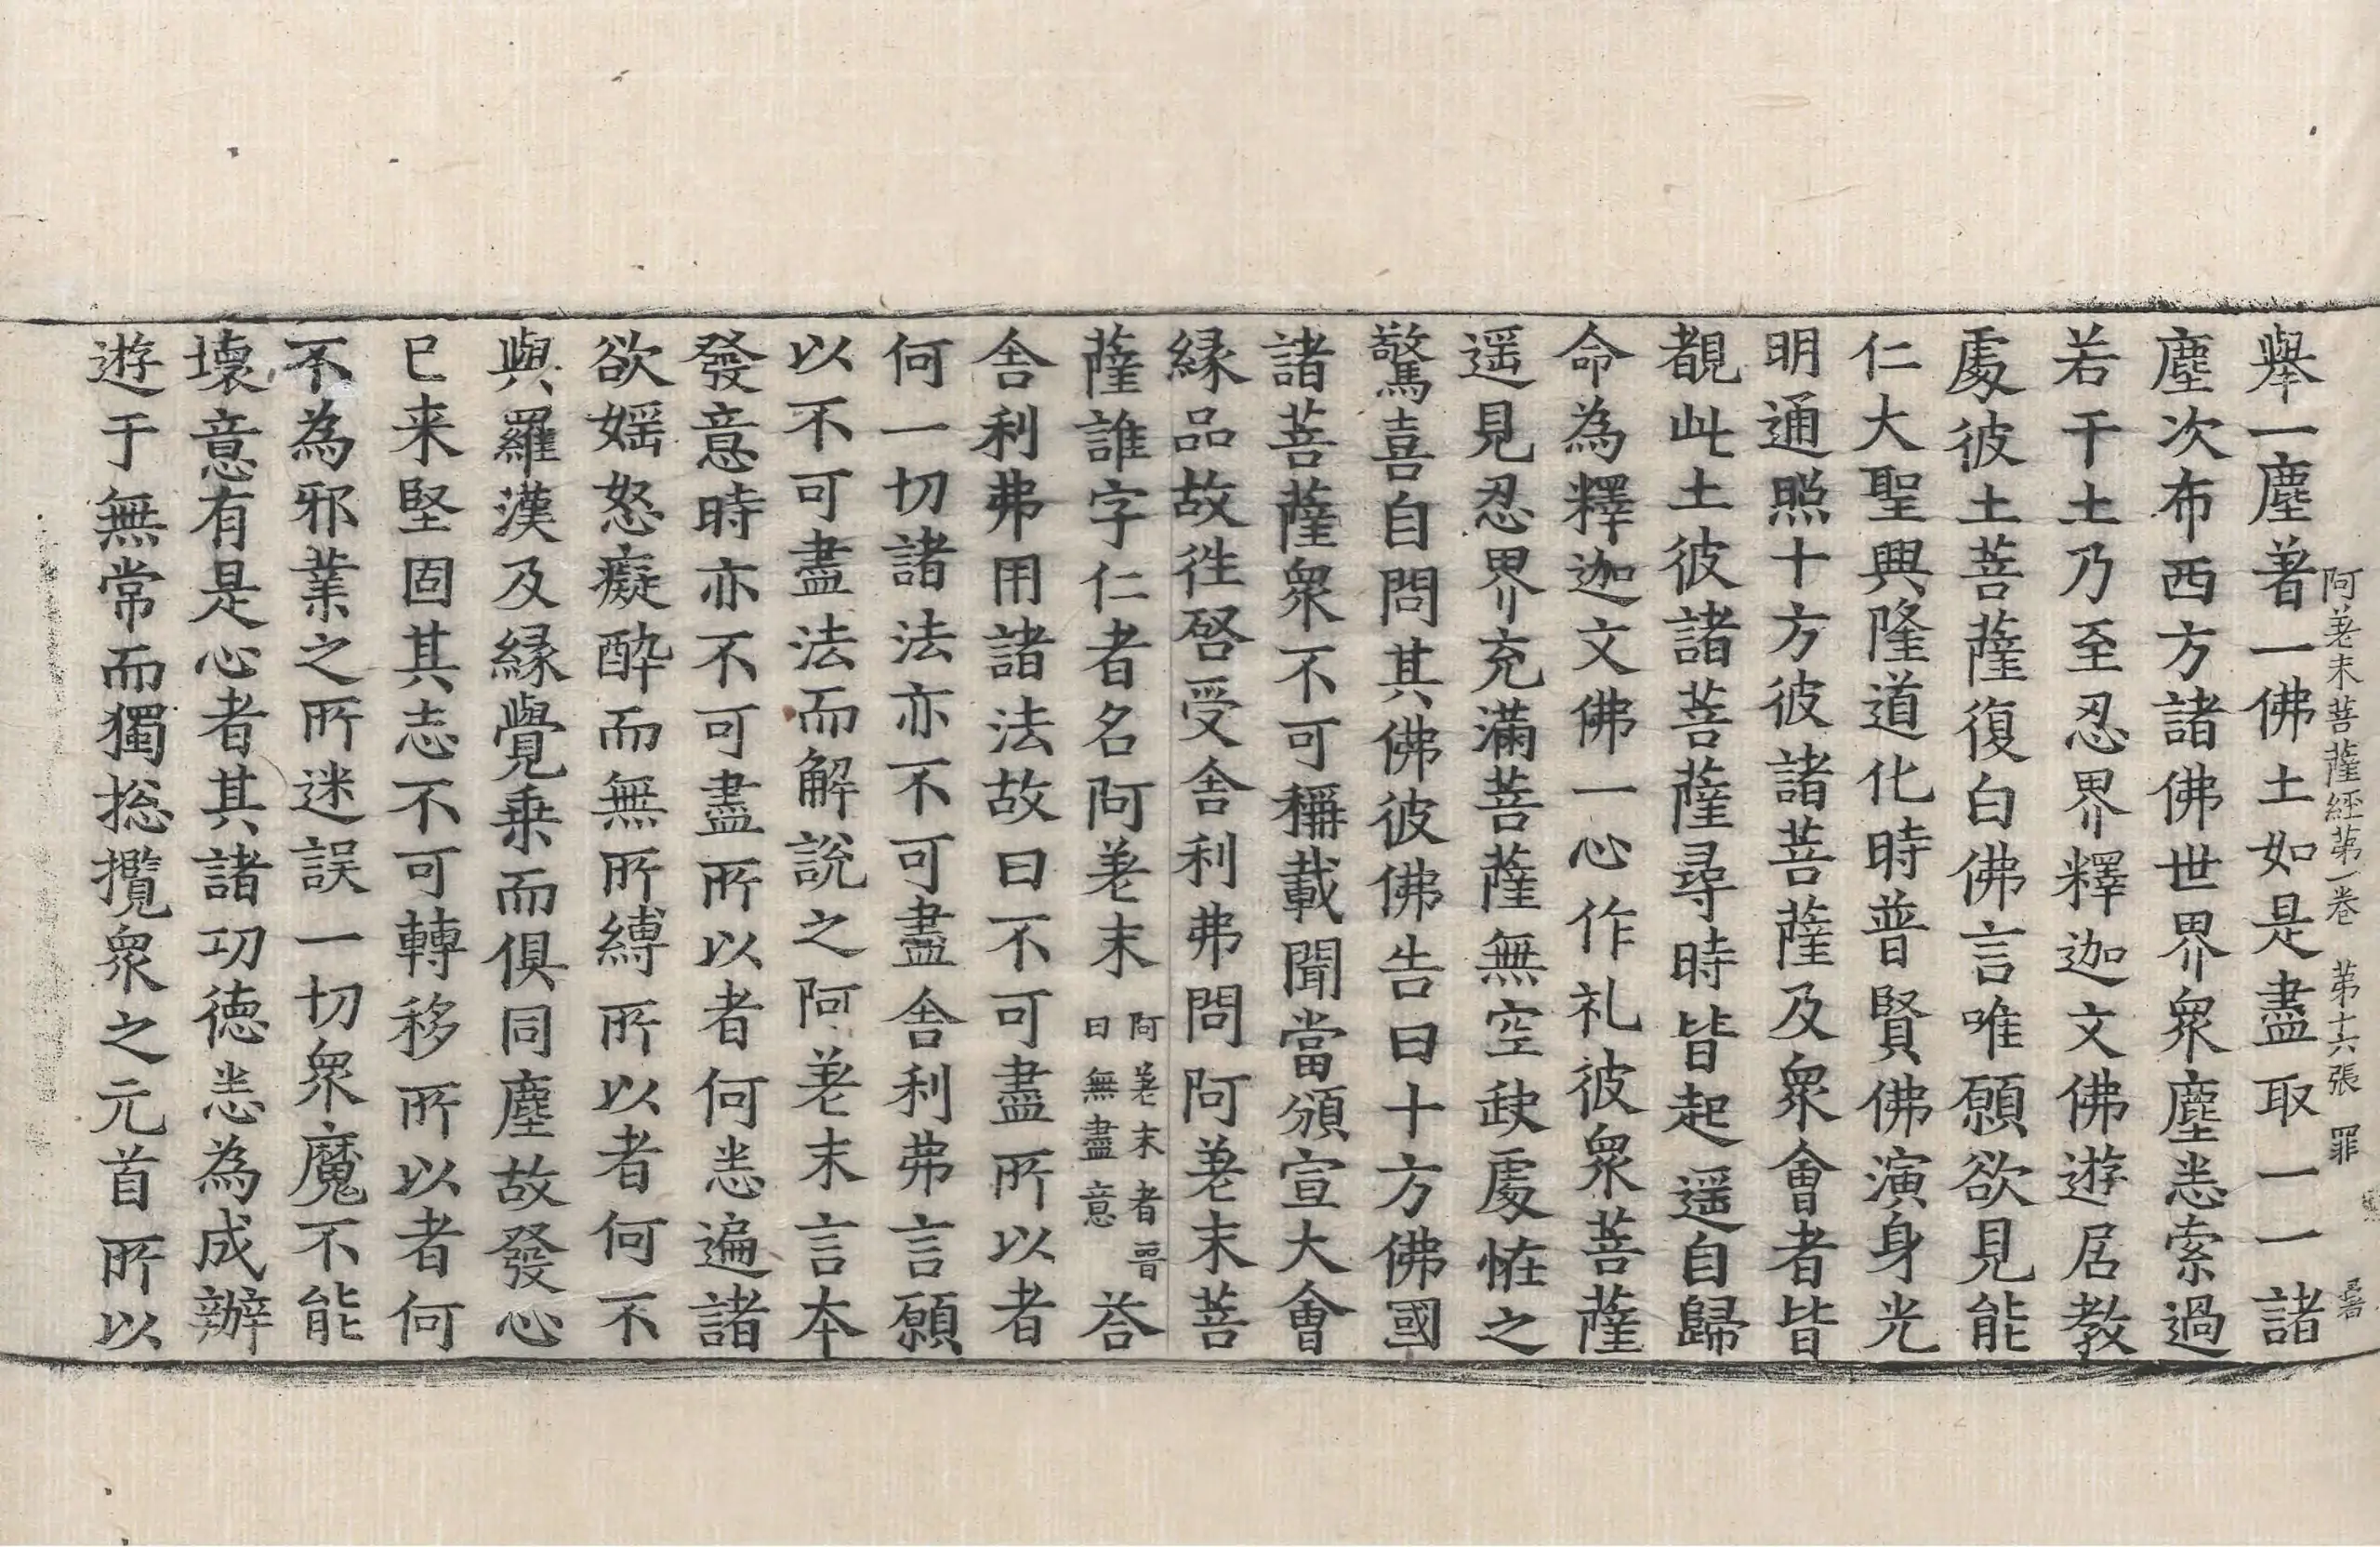 阿差末菩薩經苐一卷　苐十六張　罪
舉一塵著一佛土如是盡取一一諸
塵次布西方諸佛世界衆塵悉索過
若干土乃至忍界釋迦文佛遊居教
處彼土菩薩復白佛言唯願欲見能
仁大聖興隆道化時普賢佛演身光
明通照十方彼諸菩薩及衆會者皆
覩此土彼諸菩薩尋時皆起遥自歸
命為釋迦文佛一心作礼彼衆菩薩
遥見忍界充滿菩薩無空缺處恠之
驚喜自問其佛彼佛告曰十方佛國
諸菩薩衆不可稱載聞當頒宣大會
縁品故徃啓受舍利弗問阿差末菩
薩誰字仁者名阿差末阿差末者晋曰無盡意荅
舍利弗用諸法故曰不可盡所以者
何一切諸法亦不可盡舍利弗言願
以不可盡法而解說之阿差末言本
發意時亦不可盡所以者何悉遍諸
欲婬怒癡酔而無所縛所以者何不
與羅漢及縁覺乗而俱同塵故發心
已来堅固其志不可轉移所以者何
不為邪業之所迷誤一切衆魔不能
壞意有是心者其諸功徳悉為成辦
遊于無常而獨揔攬衆之元首所以